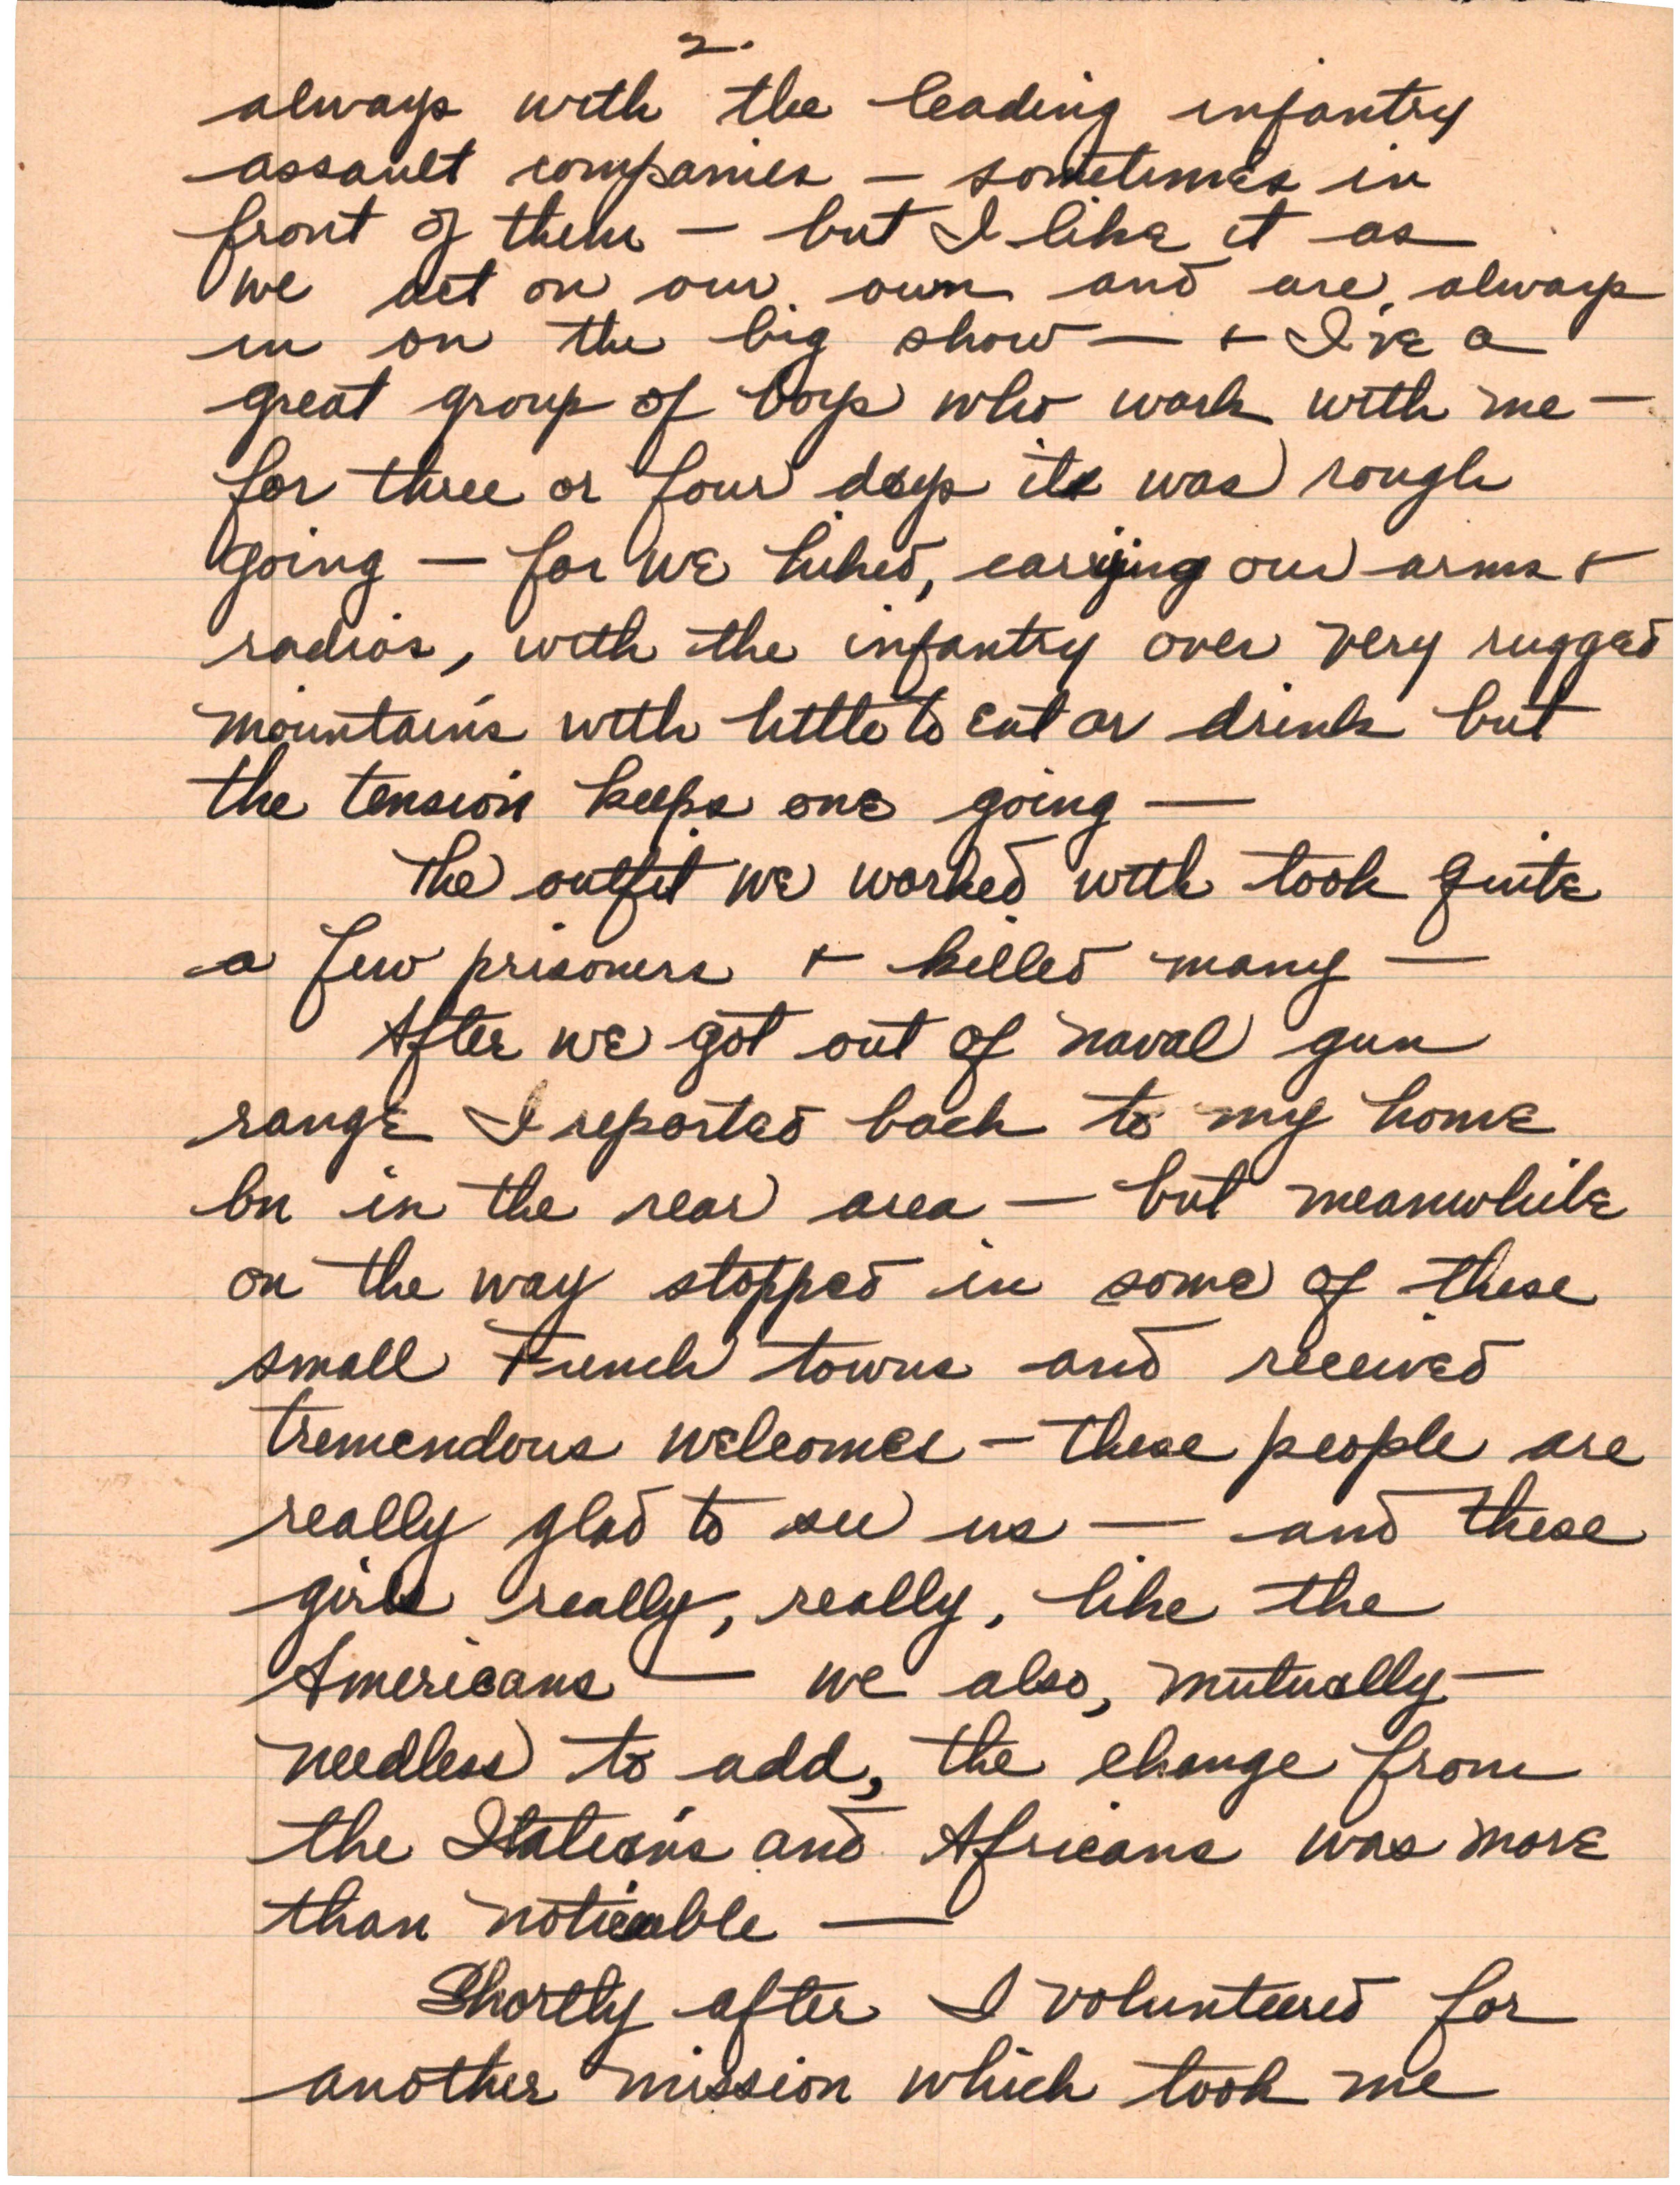 2.
always with the leading infantry
assault companies – sometimes in
front of them – but I like it as
we act on our own and are always
in on the big show – + I've a
great group of boys who work with me –
for three or four days it was rough
going – for we hiked, carrying our arms +
radios, with the infantry over very rugged
mountains with little to eat or drink but
the tension keeps one going —
The outfit we worked with took quite
a few prisoners + killed many —
After we got out of naval gun
range I reported back to my home
bn in the rear area – but meanwhile
on the way stopped in some of these
small French towns and received
tremendous welcomes – these people are
really glad to see us — and these
girls really, really, like the
Americans — we also, mutually –
needless to add, the change from
the Italians and Africans was more
than noticable —
Shortly after I volunteered for
another mission which took me